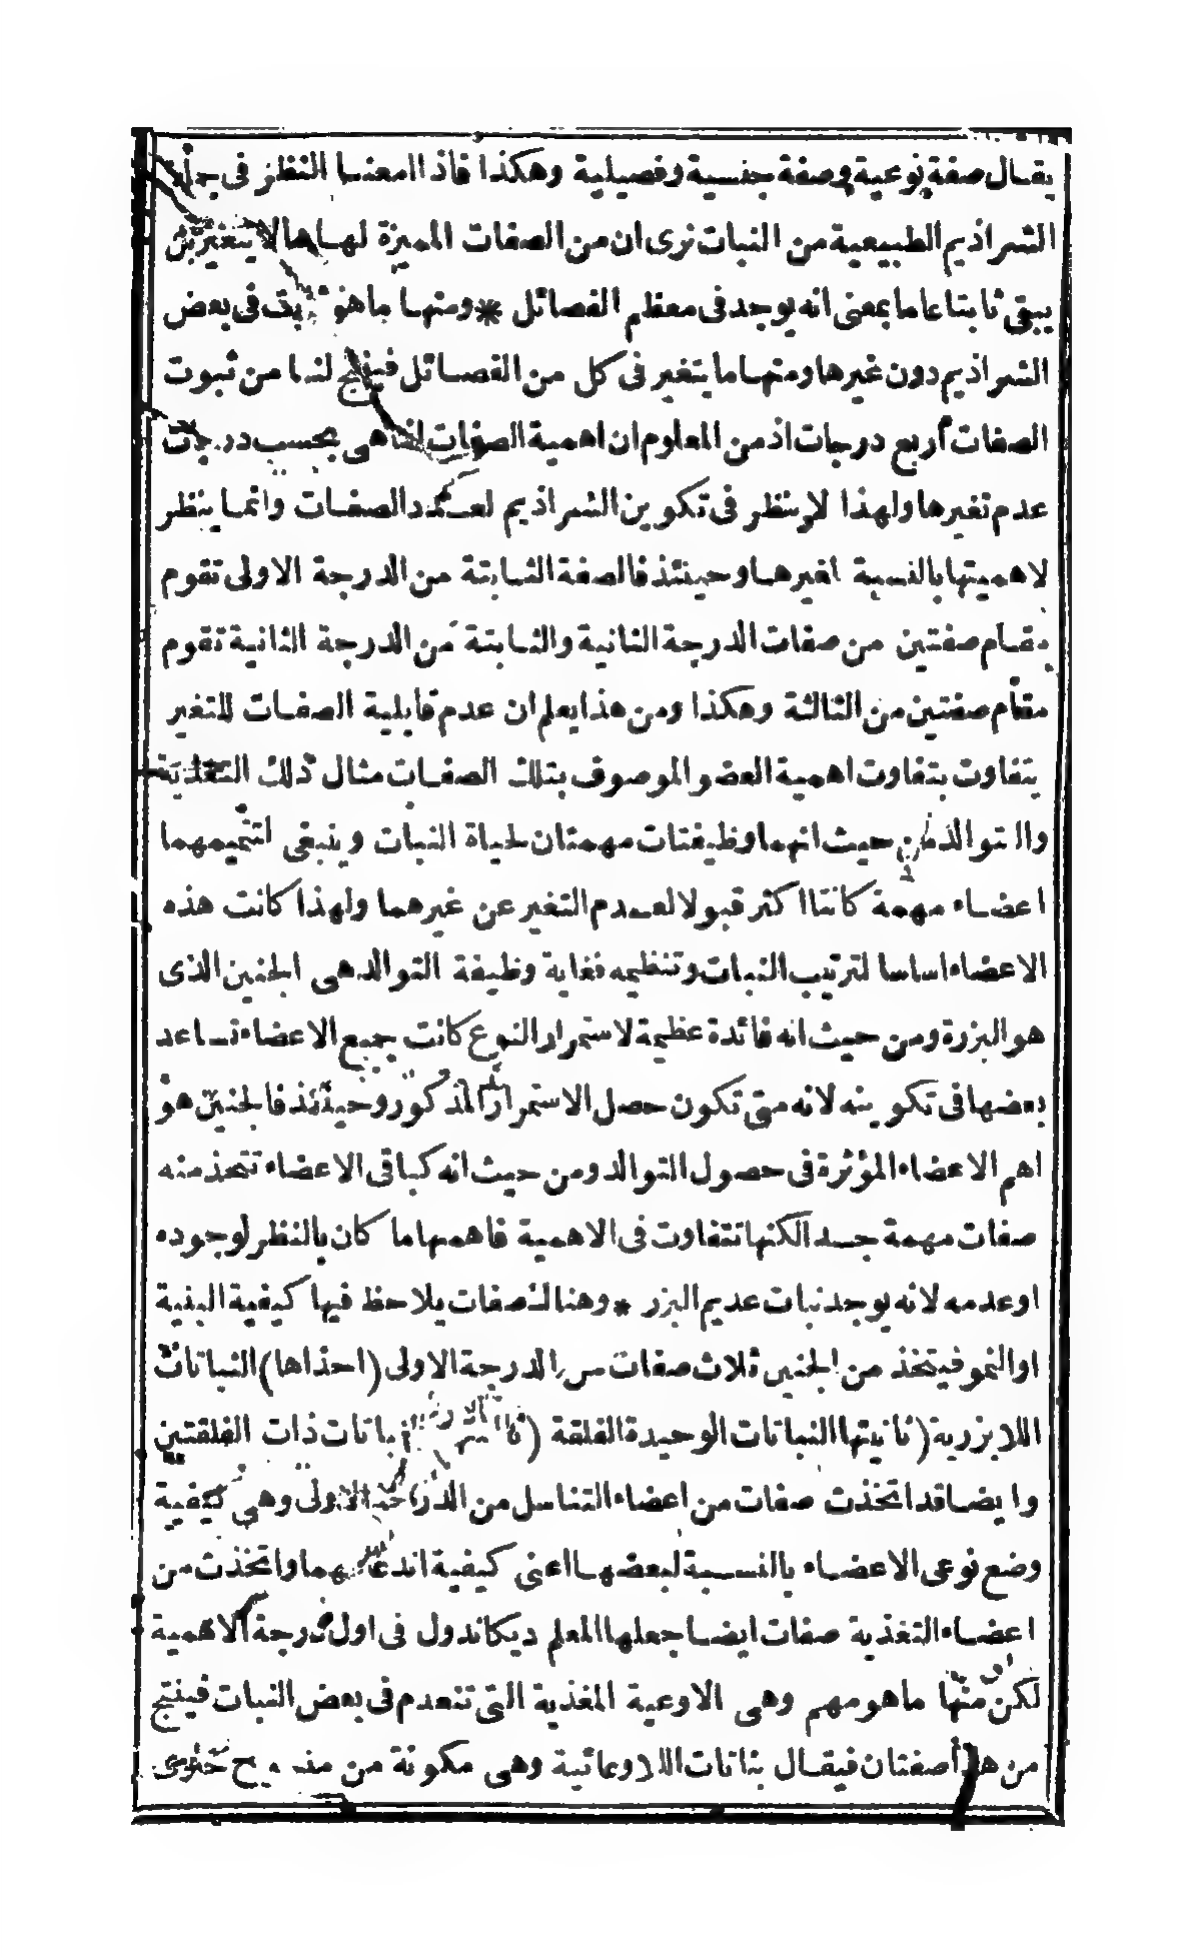 يقال صفة نوعية وصفة جنسية وفصيلية وهكذا فاذا امعنا النظر فى جملة
الشراذيم الطبيعية من النبات نرى ان من الصفات المميزة لها ما لا يتغير بل
يبقى ثابتا عاما بمعنى انه يوجد فى معظم الفصائل * ومنها ما هو ثابت فى بعض
الشراذيم دون غيرها ومنها ما يتغير فى كل من الفصائل فينتج لنا من ثبوت
الصفات أربع درجات اذ من المعلوم ان اهمية الصفات انما هى بحسب درجات
عدم تغيرها ولهذا لا ينظر فى تكوين الشراذيم لعدد الصفات وانما ينظر
لاهميتها بالنسبة لغيرها وحينئذ فالصفة الثابتة من الدرجة الاولى تقوم
مقام صفتين من صفات الدرجة الثانية والثابتة من الدرجة الثانية تقوم
مقام صفتين من الثالثة وهكذا ومن هذا يعلم ان عدم قابلية الصفات للتغير
يتفاوت بتفاوت اهمية العضو الموصوف بتلك الصفات مثال ذلك التغذية
والتوالد فمن حيث انهما وظيفتات مهمتان لحياة النبات وينبغى لتتميمهما
اعضاء مهمة كانتا اكثر قبولا لعدم التغير عن غيرهما ولهذا كانت هذه
الاعضاء اساسا لترتيب النبات وتنظيمه فغاية وظيفة التوالد هى الجنين الذى
هو البزرة ومن حيث انه فائدة عظيمة لاستمرار النوع كانت جميع الاعضاء تساعد
بعضها فى تكوينه لانه متى تكون حصل الاستمرار المذكور وحينئذ فالجنين هو
اهم الاعضاء المؤثرة فى حصول التوالد ومن حيث انه كباقى الاعضاء تتخذ منه
صفات مهمة جدا لكنها تتفاوت فى الاهمية فاهمها ما كان بالنظر لوجوده
او عدمه لانه يوجد نبات عديم البزر * وهناك صفات يلاحظ فيها كيفية البنية
او النمو فيتخذ من الجنين ثلاث صفات من الدرجة الاولى (احداها) النباتات
اللابزرية (ثانيتها) النباتات الوحيدة الفلقة (ثالثتها) النباتات ذات الفلقتين
وايضا قد اتخذت صفات من اعضاء التناسل من الدرجة الاولى وهى كيفية
وضع نوعى الاعضاء بالنسبة لبعضها اعنى كيفية اندغامهما واتخذت من
اعضاء التغذية صفات ايضا جعلها المعلم ديكاندول فى اول درجة الاهمية
لكن منها ما هو مهم وهى الاوعية المغذية التى تنعدم فى بعض النبات فينتج
من هذا صفتان فيقال نباتات اللاوعائية وهى مكونة من منسوج خلوى